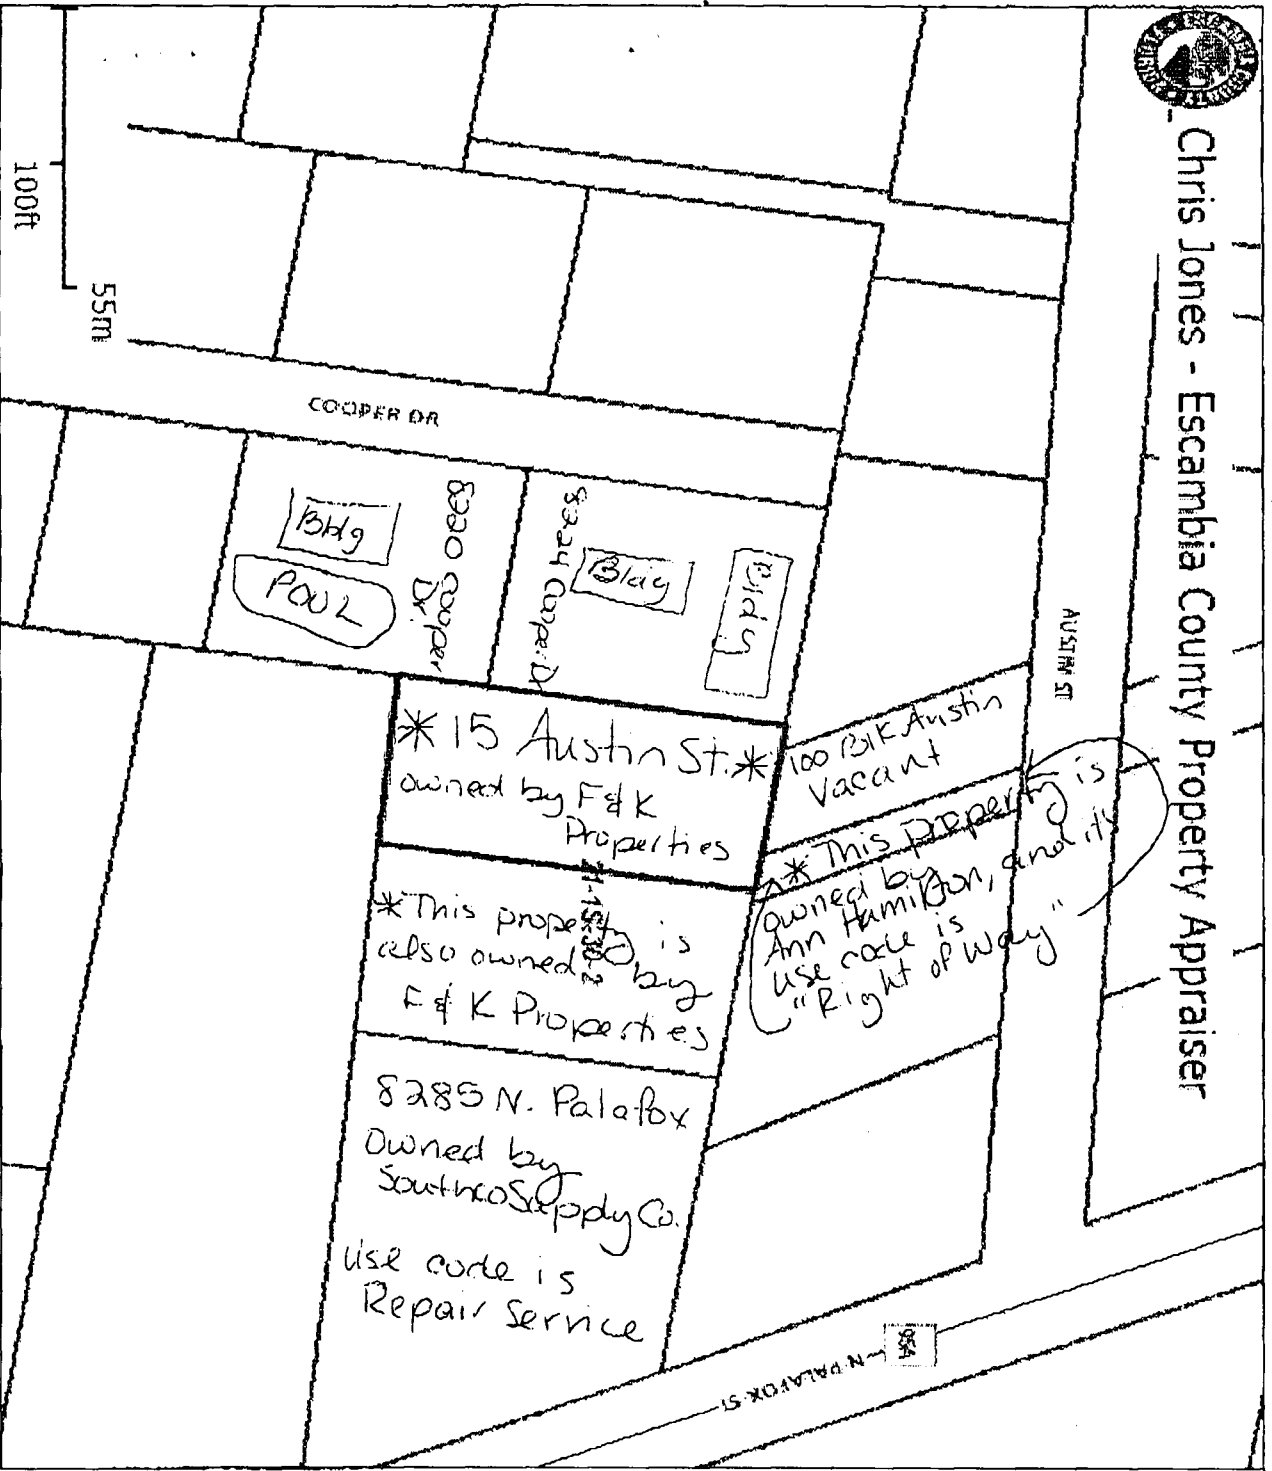 Chris Jones - Escambia County Property Appraiser
100ft
55m
COOPER DR
AUSTIN ST
Bldg
POOL
8220 Cooper
Dr.
8224 Cooper Dr
Bldg
Bldg
* 15 Austin St. *
owned by F & K
Properties
100 Blk Austin
Vacant
* This property is
owned by
Ann Hamilton, and it's
use code is
"Right of Way"
* This property is
also owned by
F & K Properties
8285 N. Palafox
Owned by
Southco Supply Co.
Use code is
Repair Service
N PALAFOX ST